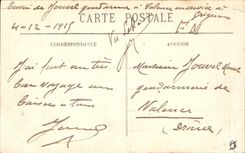 Envoi de Jouvel gendarme à Valence en service à
4-12-1915
CARTE POSTALE
CORRESPONDANCE
ADRESSE
J'ai fait un très
bon voyage un
baiser à tous
Jouvel
Monsieur Jouvel
gendarmerie de
Valence
(Drôme)